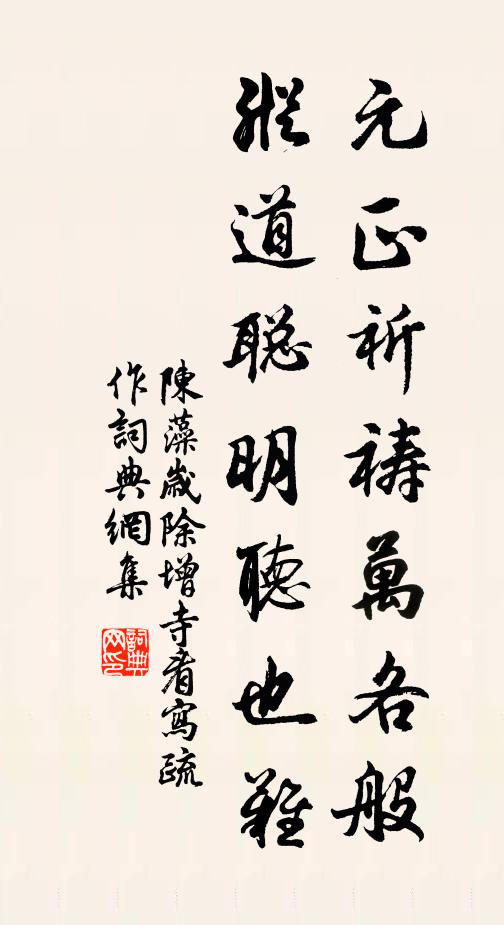 元正祈祷萬各般
縱道聡明聴也難
陳藻歲除增寺看寫疏
作詞典網集
詞典网印